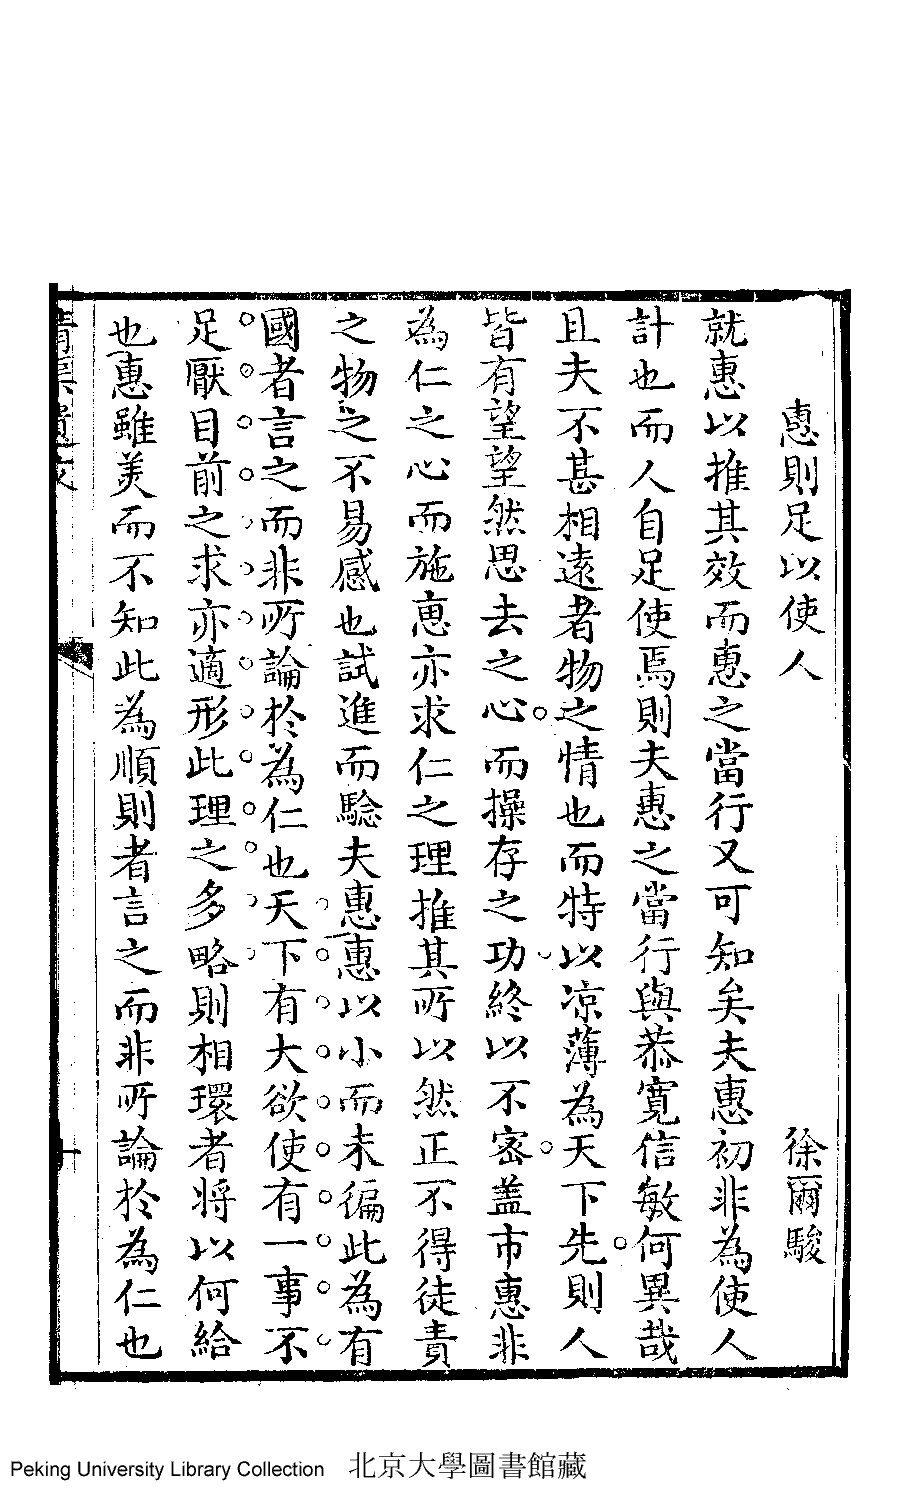 惠則足以使人　徐爾駿
就惠以推其效而惠之當行又可知矣夫惠初非為使人
計也而人自足使焉則夫惠之當行與恭寬信敏何異哉
且夫不甚相遠者物之情也而特以凉薄為天下先則人
皆有望望然思去之心而操存之功終以不密盖市惠非
為仁之心而施惠亦求仁之理推其所以然正不得徒責
之物之不易感也試進而騐夫惠惠以小而未徧此為有
國者言之而非所論於為仁也天下有大欲使有一事不
足厭目前之求亦適形此理之多略則相環者將以何給
也惠雖美而不知此為順則者言之而非所論於為仁也
十
Peking University Library Collection 北京大學圖書館藏